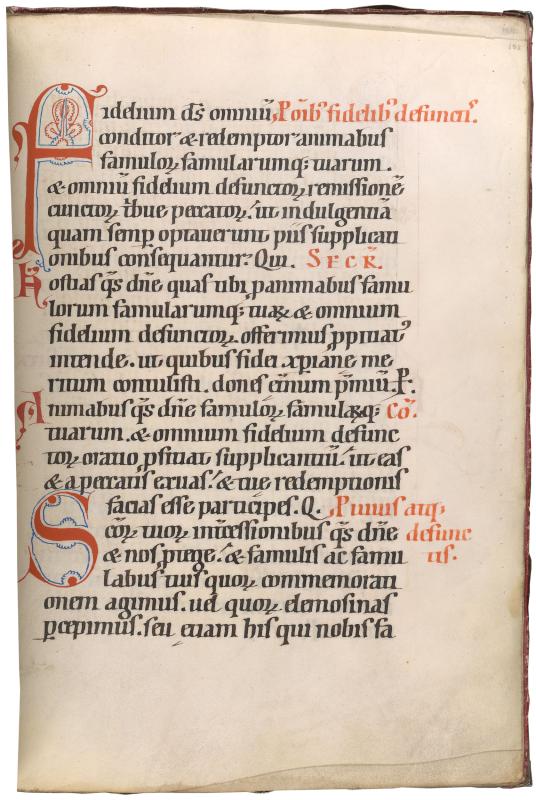 Fidelium ds omniū, P oīb' fidelib' defunct'.
conditor & redemptor animabus
famuloꝝ famularumq; tuarum.
& omniū fidelium defunctoꝝ remissionē
cunctoꝝ tbue peccatoꝝ. ut indulgentiā
quam semp optauerunt piis supplicati
onibus consequantur. Qui. SECR̄.
Hostias qs dn̄e quas tibi p animabus famu
lorum famularumq; tuaꝝ & omnium
fidelium defunctoꝝ offerimus ppitiat'
intende. ut quibus fidei xpiane me
ritum contulisti. dones & p̄miū. P.
Animabus qs dn̄e famuloꝝ famulaꝝq; Cō.
tuarum. & omnium fidelium defunc
toꝝ oratio pficiat supplicantiū. ut eas
& a peccatis exuas. & tue redemptionis
facias esse participes. Q. P uiuis atq;
Scōꝝ tuoꝝ int̄cessionibus qs dn̄e defunc
& nos ptege. & famulis ac famu tis.
labus tuis quoꝝ commemorati
onem agimus. uel quoꝝ elemosinas
pcepimus. seu etiam his qui nobis fa